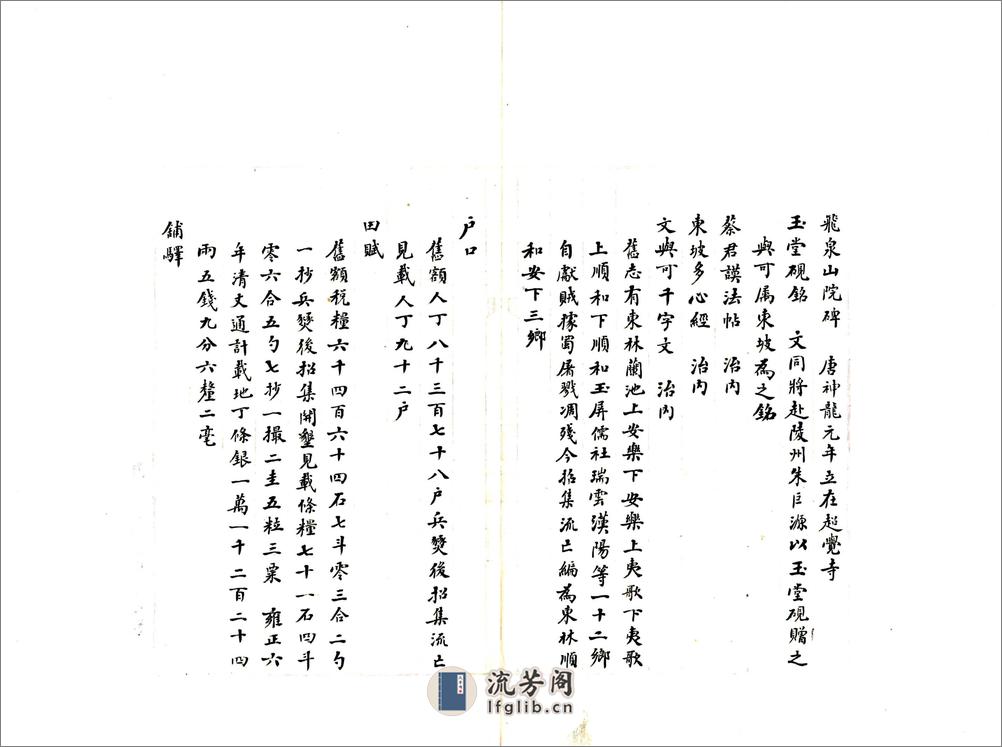 飛泉山院碑　唐神龍元年立在超覺寺
玉堂硯銘　文同將赴陵州朱巨源以玉堂硯贈之
與可属東坡為之銘
蔡君謨法帖　治内
東坡多心經　治内
文與可千字文　治内
舊志有東林蘭池上安樂下安樂上夷歌下夷歌
上順和下順和玉屏儒社瑞雲漢陽等一十二鄉
自獻賊據蜀屠戮凋殘今招集流亡編為東林順
和安下三鄉
户口
舊額人丁八千三百七十八户兵燹後招集流亡
見載人丁九十二户
田賦
舊額税糧六千四百六十四石七斗零三合二勺
一抄兵燹後招集開墾見載條糧七十一石四斗
零六合五勺七抄一撮二圭五粒三粟　雍正六
年清丈通計載地丁條銀一萬一千二百二十四
兩五錢九分六釐二毫
鋪驛
流芳阁
lfglib.cn